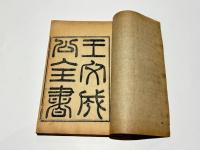 王文成
公全書